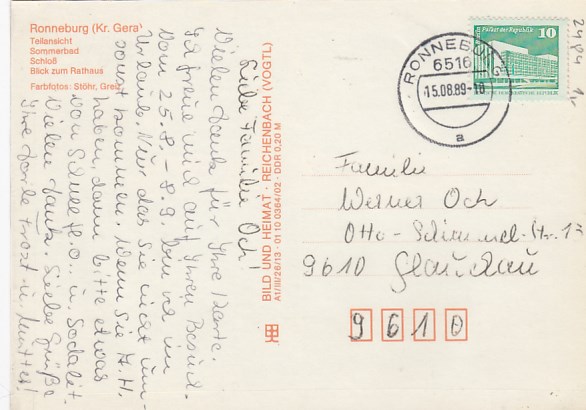 Ronneburg (Kr. Gera)
Teilansicht
Sommerbad
Schloß
Blick zum Rathaus
Farbfotos: Stöhr, Greiz
Liebe Familie Och!
Vielen Dank für Ihre Karte.
Ich freue mich auf Ihren Besuch.
Vom 25.8. - 8.9. sind wir im
Urlaub. Nur das Sie nicht um-
sonst kommen. Wenn Sie A.H.
haben, dann bitte etwas
von Silver H.O. u. Sodalit.
Vielen Dank. Liebe Grüße
Ihre
u. Mutter!
BILD UND HEIMAT · REICHENBACH (VOGTL)
A1/III/26/13 · 01 10 0364/02 · DDR 0,20 M
Palast der Republik
10
DDR
RONNEBURG
6516
15.08.89-18
a
2484
Familie
Werner Och
Otto-Schimmel-Str. 13
9610 Glauchau
9610